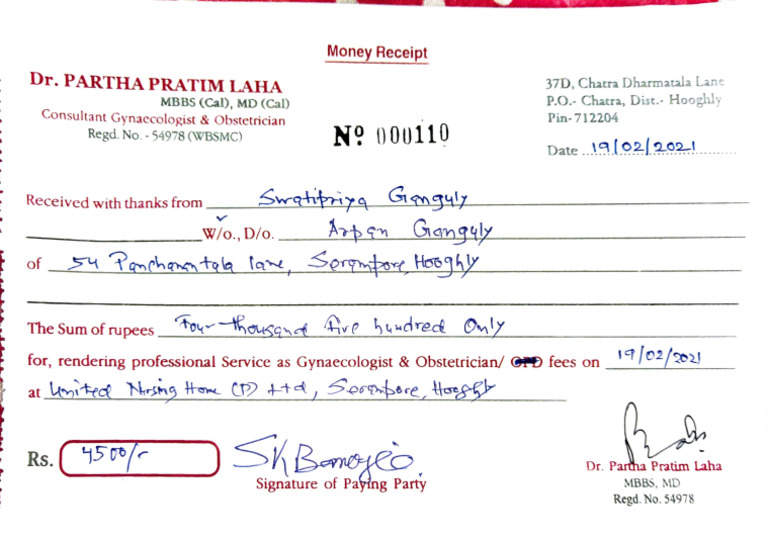 Money Receipt
Dr. PARTHA PRATIM LAHA
MBBS (Cal), MD (Cal)
Consultant Gynaecologist & Obstetrician
Regd. No. - 54978 (WBSMC)
No 000110
37D, Chatra Dharmatala Lane
P.O.- Chatra, Dist.- Hooghly
Pin- 712204
Date 19/02/2021
Received with thanks from Swatipriya Ganguly
W/o., D/o. Arpan Ganguly
of 54 Panchanantala lane, Serampore, Hooghly
The Sum of rupees Four thousand five hundred Only
for, rendering professional Service as Gynaecologist & Obstetrician/ OPD fees on 19/02/2021
at United Nursing Home (P) Ltd, Serampore, Hooghly
Rs. 4500/-
Signature of Paying Party
Dr. Partha Pratim Laha
MBBS, MD
Regd. No. 54978